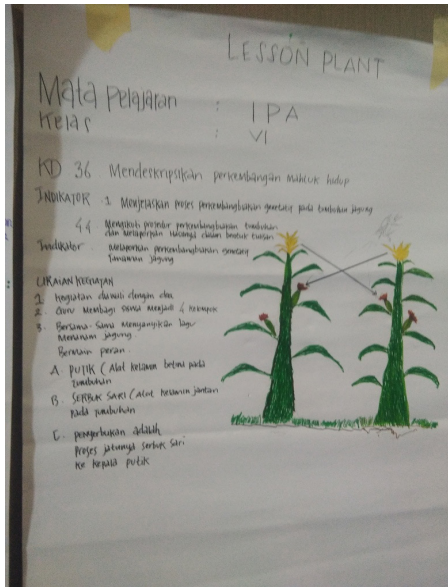 LESSON PLANT
Mata Pelajaran : IPA
Kelas : VI
KD 36 Mendeskripsikan perkembangan makluk hidup
INDIKATOR . 1 Menjelaskan proses perkembangbiakan generatif pada tumbuhan jagung
44 . Mengikuti prosedur perkembangbiakan tumbuhan
dan melaporkan hasilnya dalam bentuk tulisan
Indikator . Melaporkan perkembangbiakan generatif
tanaman jagung
URAIAN KEGIATAN
1. Kegiatan dimulai dengan doa
2. Guru Membagi siswa menjadi 4 kelompok
3. Bersama-sama menyanyikan lagu
Menanam jagung.
Bermain peran.
A. PUTIK ( Alat kelamin betina pada
tumbuhan
B. SERBUK SARI ( Alat kelamin jantan
pada tumbuhan
C. penyerbukan adalah
proses jatuhnya serbuk sari
ke kepala putik